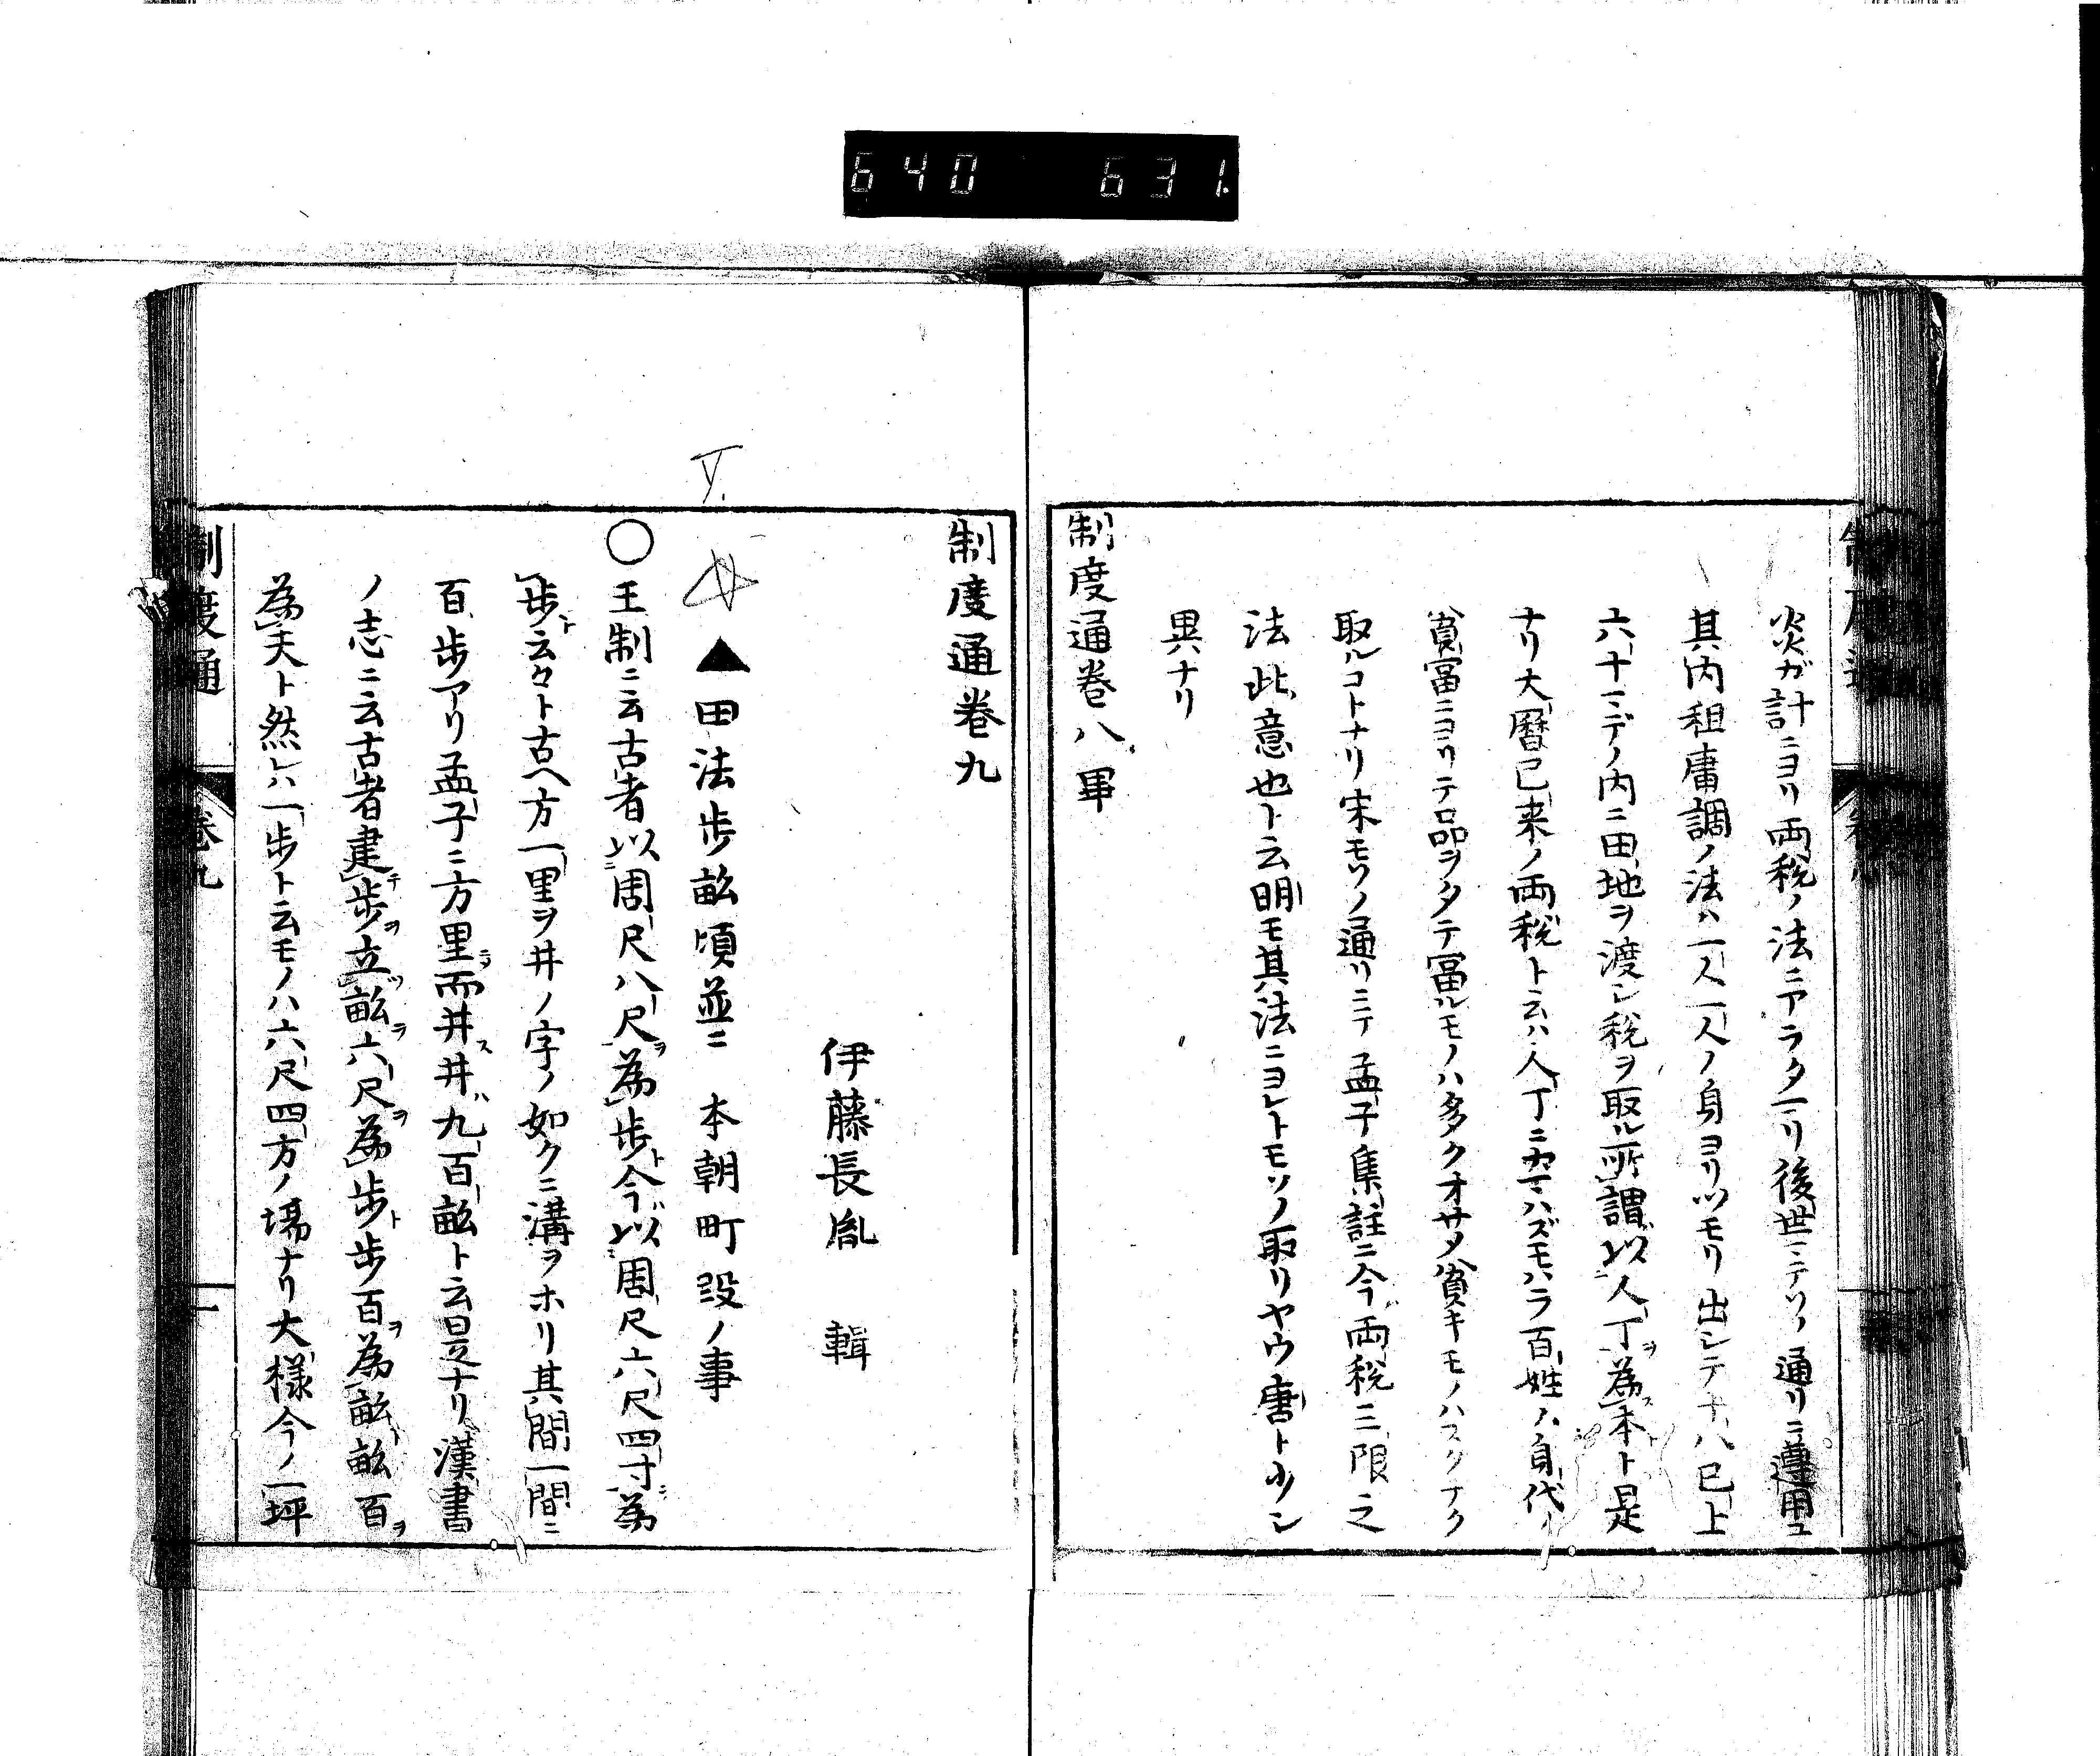 640 631
炎ガ計ニヨリ両税ノ法ニアラタマリ後世ニテソノ通リニ遵用ユ
其内租庸調ノ法ハ一人一人ノ身ヨリツモリ出シテ十八已上
六十マデノ内ニ田地ヲ渡シ税ヲ取ル所謂以人丁ヲ為ス本ト是
ナリ大暦已来ノ両税ト云ハ人丁ニカマハズモハラ百姓ノ身代ノ
貧冨ニヨリテ品ヲタテ冨ルモノハ多クオサメ貧キモノハスクナク
取ルコトナリ宋モソノ通リニテ孟子集註ニ今両税三限之
法此意也ト云明モ其法ニヨレトモソノ取リヤウ唐ト少シ
異ナリ
制度通巻八畢
制度通巻九
伊藤長胤 輯
▲田法歩畝頃並ニ 本朝町段ノ事
○王制ニ云古者以周尺八尺ヲ為歩ト今以周尺六尺四寸為
歩ト云々ト古ヘ方一里ヲ井ノ字ノ如クニ溝ヲホリ其間一間ニ
百歩アリ孟子ニ方里ニヲ而井ス井ハ九百畝ト云是ナリ漢書
ノ志ニ云古者建テ歩ヲ立ツ畝ヲ六尺ヲ為歩ト歩百ヲ為畝ト畝百ヲ
為夫ト然レハ一歩ト云モノハ六尺四方ノ場ナリ大様今ノ一坪
制度通 巻九 一